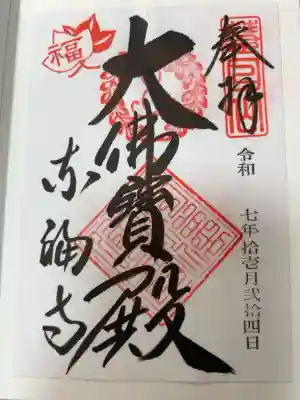 奉拝
令和 七年拾壱月弐拾四日
大佛寳殿
東福寺
福